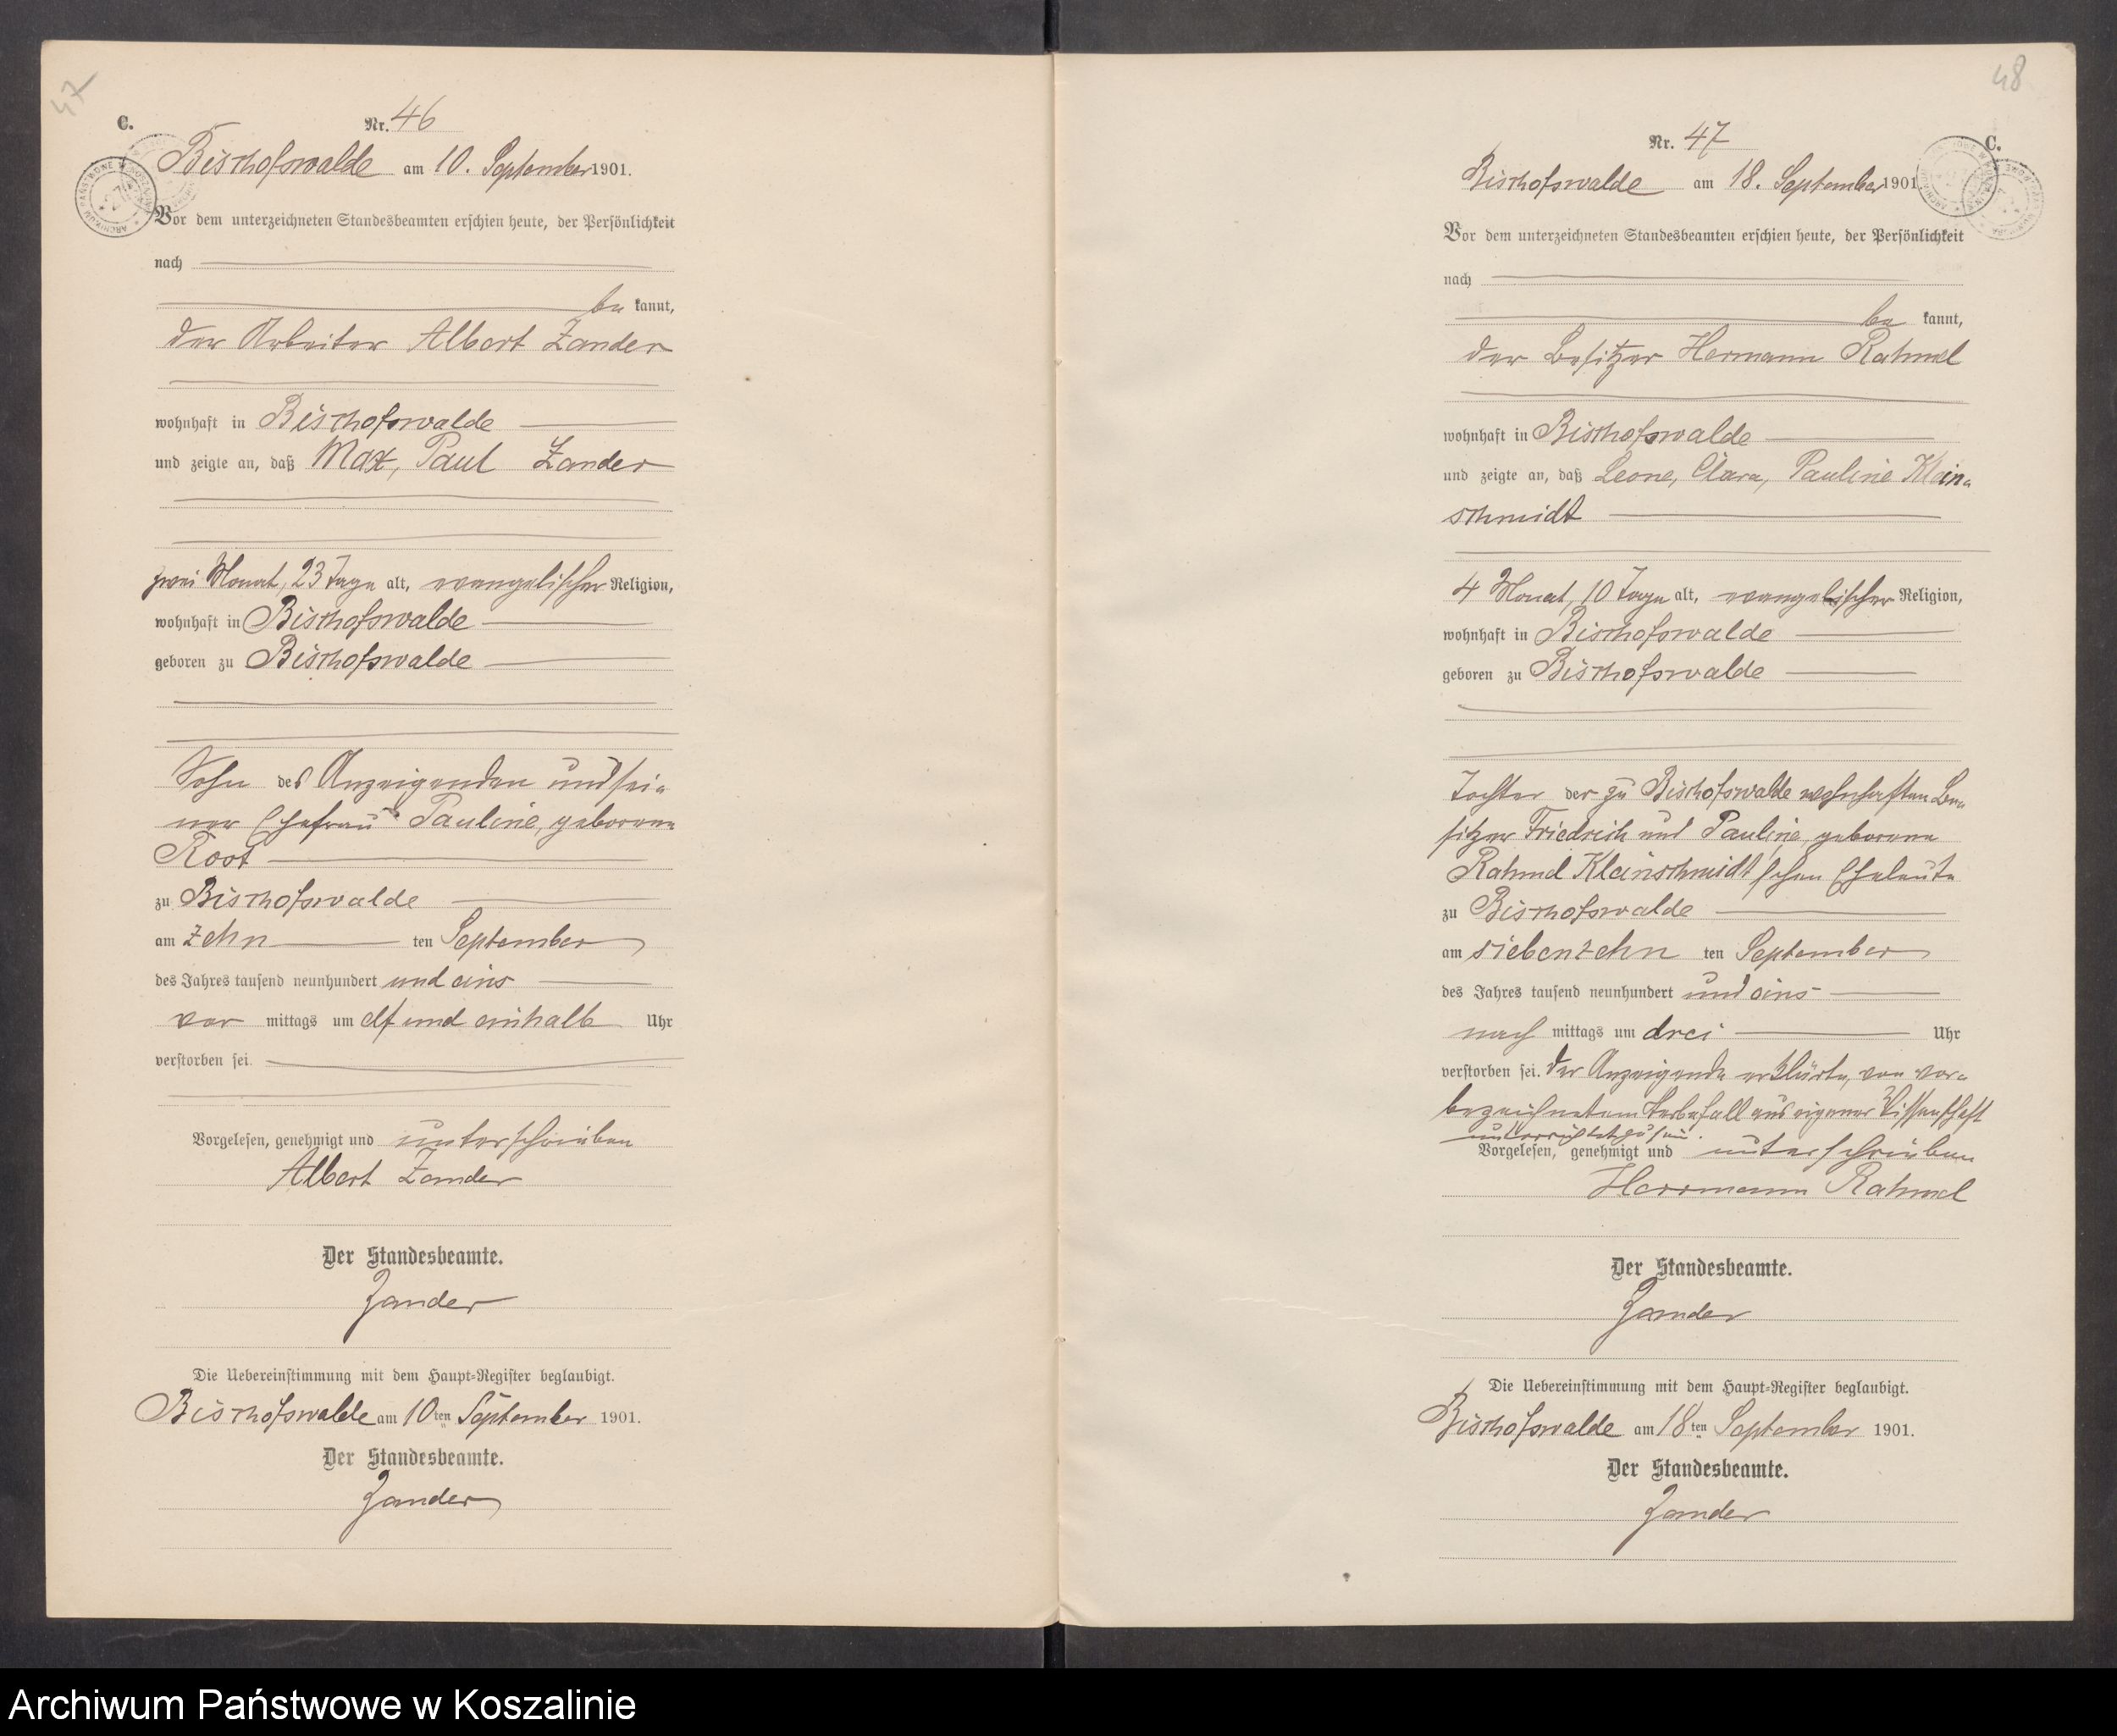 47
C.
Nr. 46
Bischofswalde am 10. September 1901.
Vor dem unterzeichneten Standesbeamten erschien heute, der Persönlichkeit
nach
be kannt,
der Arbeiter Albert Zander
wohnhaft in Bischofswalde
und zeigte an, daß Max, Paul Zander
zwei Monat, 23 Tage alt, evangelischer Religion,
wohnhaft in Bischofswalde
geboren zu Bischofswalde
Sohn des Anzeigenden und sei-
ner Ehefrau Pauline, geborene
Roost
zu Bischofswalde
am zehn ten September
des Jahres tausend neunhundert und eins
vor mittags um elf und einhalb Uhr
verstorben sei.
Vorgelesen, genehmigt und unterschrieben
Albert Zander
Der Standesbeamte.
Zander
Die Uebereinstimmung mit dem Haupt-Register beglaubigt.
Bischofswalde am 10ten September 1901.
Der Standesbeamte.
Zander
48
C.
Nr. 47
Bischofswalde am 18. September 1901
Vor dem unterzeichneten Standesbeamten erschien heute, der Persönlichkeit
nach
be kannt,
der Besitzer Hermann Rahmel
wohnhaft in Bischofswalde
und zeigte an, daß Leone, Clara, Pauline Klein-
schmidt
4 Monat, 10 Tage alt, evangelischer Religion,
wohnhaft in Bischofswalde
geboren zu Bischofswalde
Tochter der zu Bischofswalde wohnhaften Be-
sitzer Friedrich und Pauline, geborene
Rahmel Kleinschmidt'schen Eheleute
zu Bischofswalde
am siebenzehn ten September
des Jahres tausend neunhundert und eins
nach mittags um drei Uhr
verstorben sei. Der Anzeigende erklärte, von vor-
bezeichnetem Sterbefall aus eigener Wissenschaft
unterrichtet zu sein.
Vorgelesen, genehmigt und unterschrieben
Herrmann Rahmel
Der Standesbeamte.
Zander
Die Uebereinstimmung mit dem Haupt-Register beglaubigt.
Bischofswalde am 18ten September 1901.
Der Standesbeamte.
Zander
Archiwum Państwowe w Koszalinie